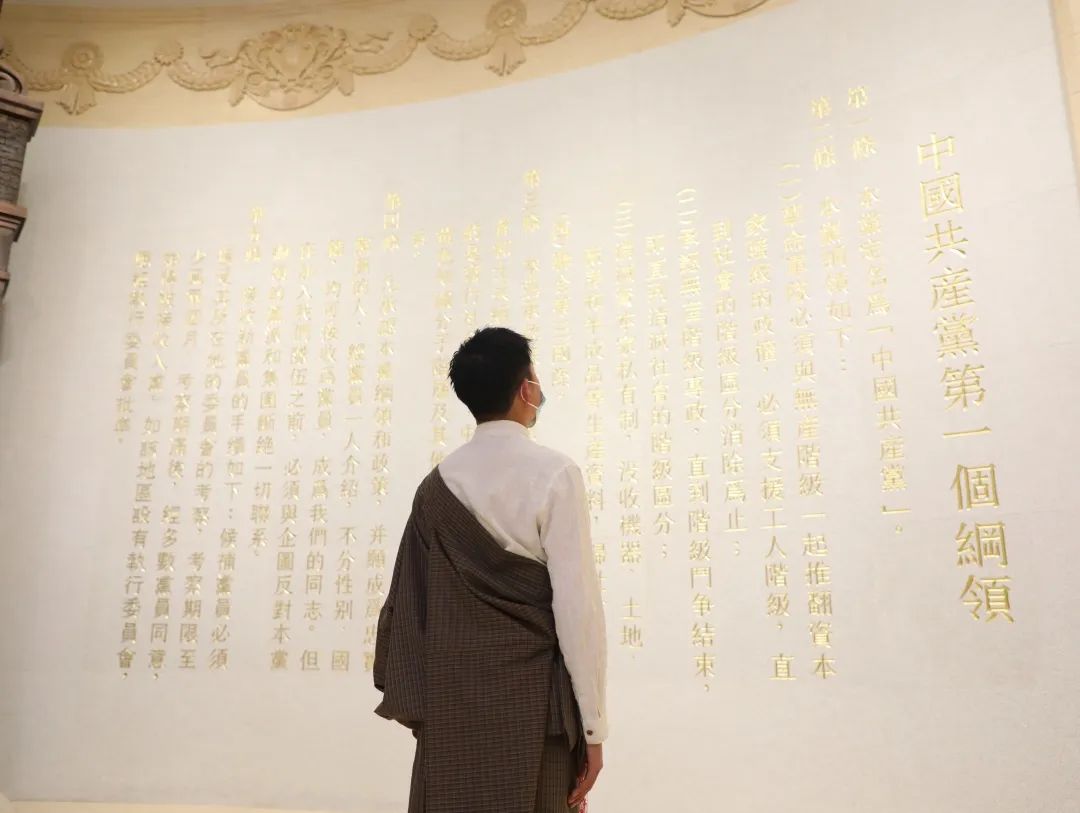 中國共産黨第一個綱領
第一條 本黨定名爲「中國共産黨」。
第二條 本黨綱領如下：
(一)革命軍隊必須與無産階級一起推翻資本
家階級的政權，必須支援工人階級，直
到社會的階級區分消除爲止；
(二)承認無産階級專政，直到階級鬥争結束，
即直到消滅社會的階級區分；
(三)消滅資本家私有制，没收機器、土地、
和半成品等生産資料，
(四)聯合第三國際。
第三條
第四條 凡承認本黨綱領和政策，并願成爲忠實
黨員的人，經黨員一人介紹，不分性别、國
籍，均可接收爲黨員，成爲我們的同志。但
在加入我們隊伍之前，必須與企圖反對本黨
綱領的黨派和集團斷絶一切聯系。
第五條 接收新黨員的手續如下：候補黨員必須
接受其所在地的委員會的考察，考察期限至
少爲兩個月。考察期滿後，經多數黨員同意，
始得被接收入黨。如該地區設有執行委員會，
應經執行委員會批准。